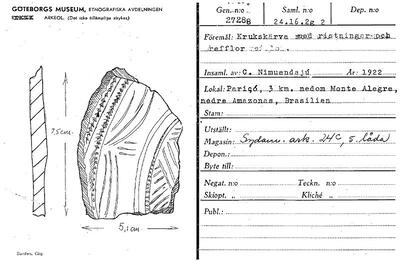 GÖTEBORGS MUSEUM, ETNOGRAFISKA AVDELNINGEN
ARKEOL. (Det icke tillämpliga strykes)
7,5 cm.
5,1 cm
Gen. n:o
27288
Saml. n:o
24.16.2g 2
Dep. n:o
Föremål: Krukskärva med ristningar och
Insaml. av: C. Nimuendajú År: 1922
Lokal: Pariçó, 3 km. nedom Monte Alegre,
nedre Amazonas, Brasilien
Stam:
Utställt:
Magasin: Sydam. ark. 24C, 5. låda
Depon.:
Byte till:
Negat. n:o Teckn. n:o
Skiopt. „ Kliché „
Publ.: